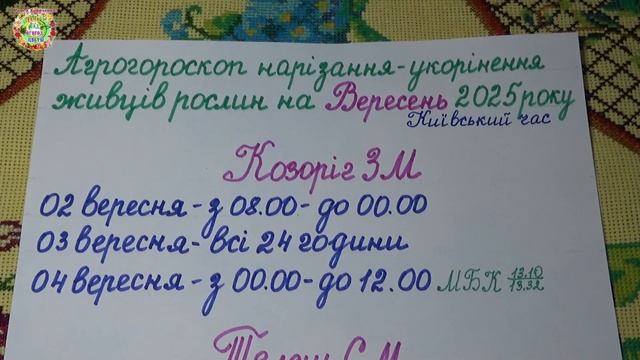 Агрогороскоп нарізання-укорінення
живців рослин на Вересень 2025 року
Київський час
Козоріг ЗМ
02 вересня - з 08.00 - до 00.00
03 вересня - всі 24 години
04 вересня - з 00.00 - до 12.00 МБК 13.10
13.32